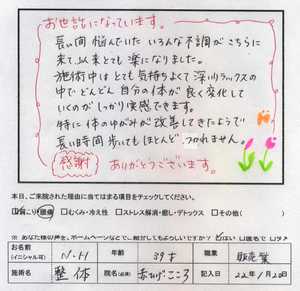 お世話になっています。
長い間悩んでいたいろんな不調がこちらに
来て以来とても楽になりました。
施術中はとても気持ちよくて深いリラックスの
中でどんどん自分の体が良く変化して
いくのがしっかり実感できます。
特に体のゆがみが改善してきたようで
長い時間歩いてもほとんどつかれません。
感謝 ありがとうございます。
本日、ご来院された理由に当てはまる項目をチェックしてください。
肩こり・頭痛 □むくみ・冷え性 □ストレス解消・癒し・デトックス □その他( )
※あなた様の声を、ホームページなどでご紹介してもよろしいですか?
お名前 (イニシャル可) N.H 年齢 39才 職業 販売業
施術名 整体 院名(必須) 赤ひげこころ 記入日 22年1月20日